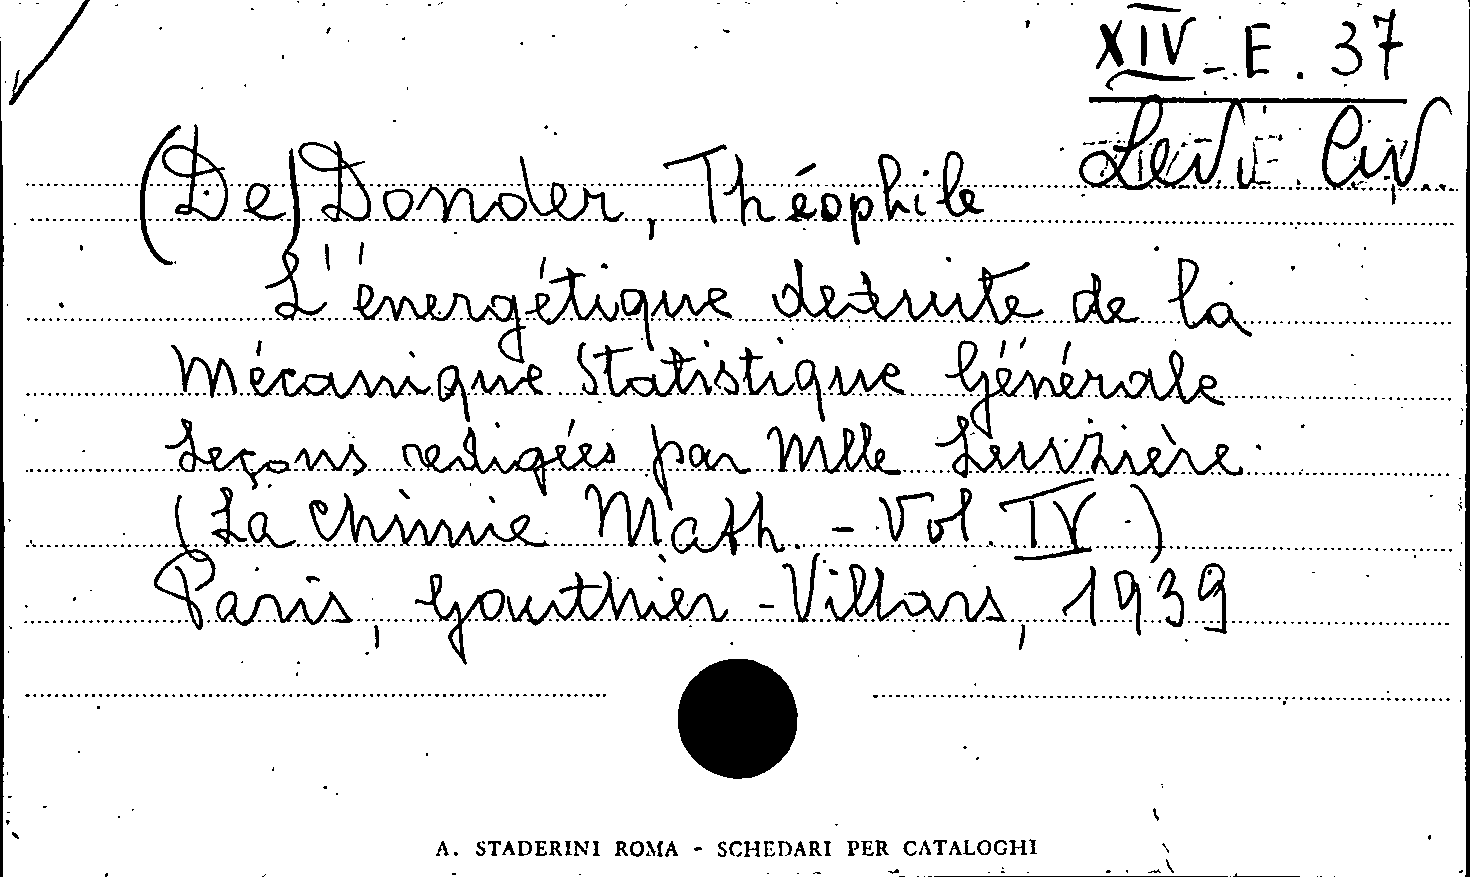 XIV - E. 37
Levi Civ.
(De) Donder, Théophile
L'énergétique dedruite de la
Mécanique Statistique Générale
Leçons redigées par Mlle
(La Chimie Math. - Vol. IV.)
Paris, Gauthier-Villars, 1939
A. STADERINI ROMA - SCHEDARI PER CATALOGHI